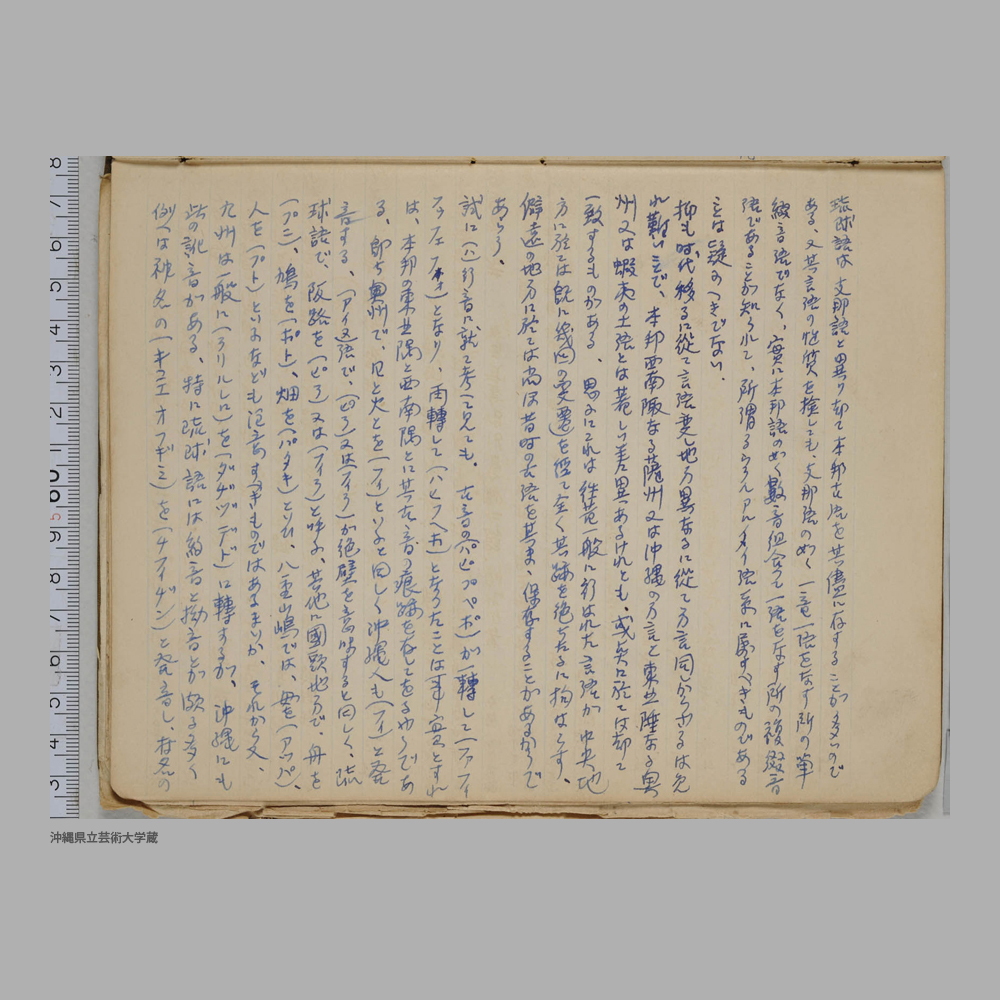 琉球語は支那語と異り却て本邦古語を其儘に存することが多いので
ある、又其言語の性質を検しても、支那語の如く一音一語をなす所の単
綴音語でなく、実に本邦語の如く数音組合つて一語をなす所の複綴音
語であることが知られて、所謂るうらるアルタイ語系に属すべきものである
ことは疑のべきでない、
抑も時代移るに従て言語変じ地方異なるに従て方言同じからざるは免
れ難いことで、本邦西南陬なる薩州又は沖縄の方言と東北陲なる奥
州又は蝦夷の土語とは著しい差異があるけれども、或点に於ては却て
一致するものがある、思ふにこれは往昔一般に行はれた言語が中央地
方に於ては既に幾回の変遷を経て全く其跡を絶ちたるに拘はらず、
僻遠の地方に於ては尚ほ昔時の古語を其まゝ保存することがあるからで
あらう、
試に(ハ)行音に就て考へて見ても、古音の(パピプペポ)が一轉して(ファフィ
フフェフォ)となり、再轉して(ハヒフヘホ)となつたことは事実とすれ
ば、本邦の東北隅と西南隅とに其古音の痕跡を存してをるやうであ
る、即ち奥州で、日と火とを(フィ)といふと同しく沖縄人も(フィ)と発
音する、(アイヌ)語で、(ピラ)又は(フィラ)が絶壁を意味すると同しく、琉
球語で、阪路を(ピラ)又は(フィラ)と呼ぶ、其他に国頭地方で、舟を
(プニ)、鳩を(ポト)、畑を(パタキ)といひ、八重山嶋では、母を(アッパ)、
人を(プト)といふなども注意すべきものではあるまいか、それから又、
九州は一般に(ラリルレロ)を(ダヂヅデド)に轉するが、沖縄にも
此の訛音がある、特に琉球語には約音と拗音とが頗る多く
例へば神名の(キコエオフギミ)を(チフィヂン)と発音し、村名の
沖縄県立芸術大学蔵